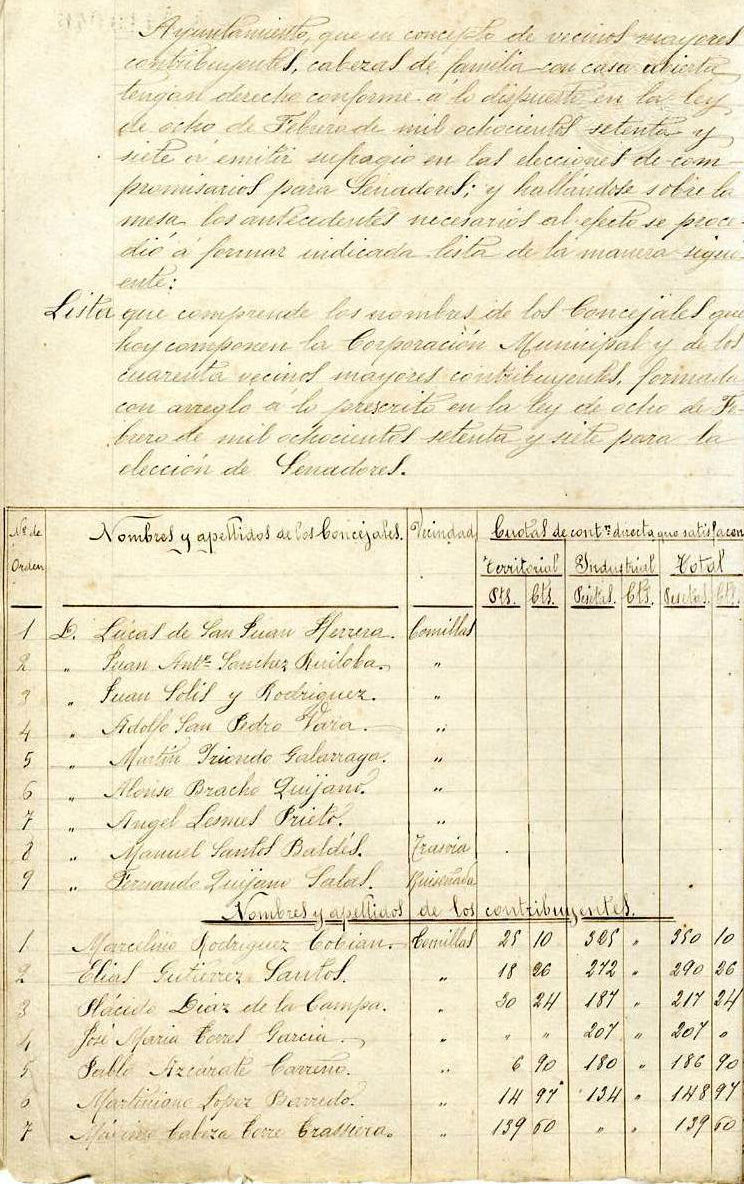 Ayuntamiento, que en concepto de vecinos mayores
contribuyentes, cabezas de familia con casa abierta
tengan derecho conforme á lo dispuesto en la ley
de ocho de Febrero de mil ochocientos setenta y
siete á emitir sufragio en las elecciones de com-
promisarios para Senadores; y hallándose sobre la
mesa los antecedentes necesarios al efecto se proce-
dió á formar indicada lista de la manera sigui-
ente:
Lista que comprende los nombres de los Concejales que
hoy componen la Corporación Municipal y de los
cuarenta vecinos mayores contribuyentes, formada
con arreglo á lo prescrito en la ley de ocho de Fe-
brero de mil ochocientos setenta y siete para la
elección de Senadores.
Nº de Orden Nombres y apellidos de los Concejales. Vecindad Cuotas de contón directa que satisfacen
Territorial Industrial Total
Pts. Cts. Pesetas. Cts. Pesetas. Cts.
1 D. Lucas de San Juan Herrera. Comillas
2 „ Juan Antº Sanchez Ruiloba. „
3 „ Juan Solis y Rodriguez. „
4 „ Adolfo San Pedro Vara. „
5 „ Martin Triondo Galarraga. „
6 „ Alonso Bracho Quijano. „
7 „ Angel Lesmes Prieto. „
8 „ Manuel Santos Baldés. Trasvia
9 „ Fernando Quijano Salas. Ruiseñada
Nombres y apellidos de los contribuyentes.
1 Marcelino Rodriguez Cobian. Comillas 25 10 325 „ 350 10
2 Elias Gutierrez Santos. „ 18 26 272 „ 290 26
3 Plácido Diaz de la Campa. „ 30 24 187 „ 217 24
4 José Maria Torres Garcia. „ „ „ 207 „ 207 „
5 Pablo Azcárate Carreño. „ 6 90 180 „ 186 90
6 Martiniano Lopez Barredo. „ 14 97 134 „ 148 97
7 Máximo Cabeza Torre Trassiera. „ 139 60 „ „ 139 60